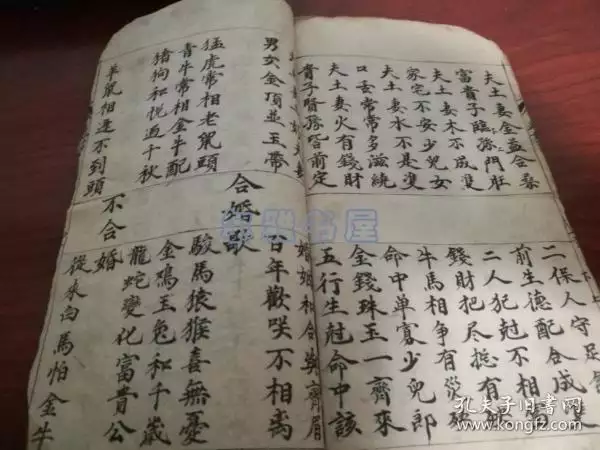 夫土妻金益合
富貴子臨弥門庭
夫土妻木不成雙
家宅不安少兒女
夫土妻水不是雙
口舌常常多滋繞
夫土妻火有錢財
貴子賢孫皆前定
二保人守足
前生德配合成雙
二人犯尅不相
錢財把尽
牛馬相争有災
命中单寡少兒郎
金錢珠玉一齊來
五行生尅命中該
婚姻和合與齊眉
男女金頂並玉帶
百年歡咲不相离
合婚歌
猛虎常相老鼠頭
駿馬猿猴喜無憂
青牛常相金牛配
金鴻玉兔和千歲
猪狗和悅過千秋
龍蛇變化富貴公
不合婚
羊鼠相逢不到頭
從來白馬怕金牛
书屋
孔夫子旧书网
kongfz.com